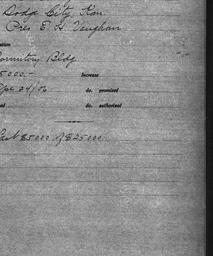 Dodge City, Kan
Pres E H Vaughan
ormitory Bldg
5000.-
Increase
24/06
do. promised
do. authorized
85000 of $25000